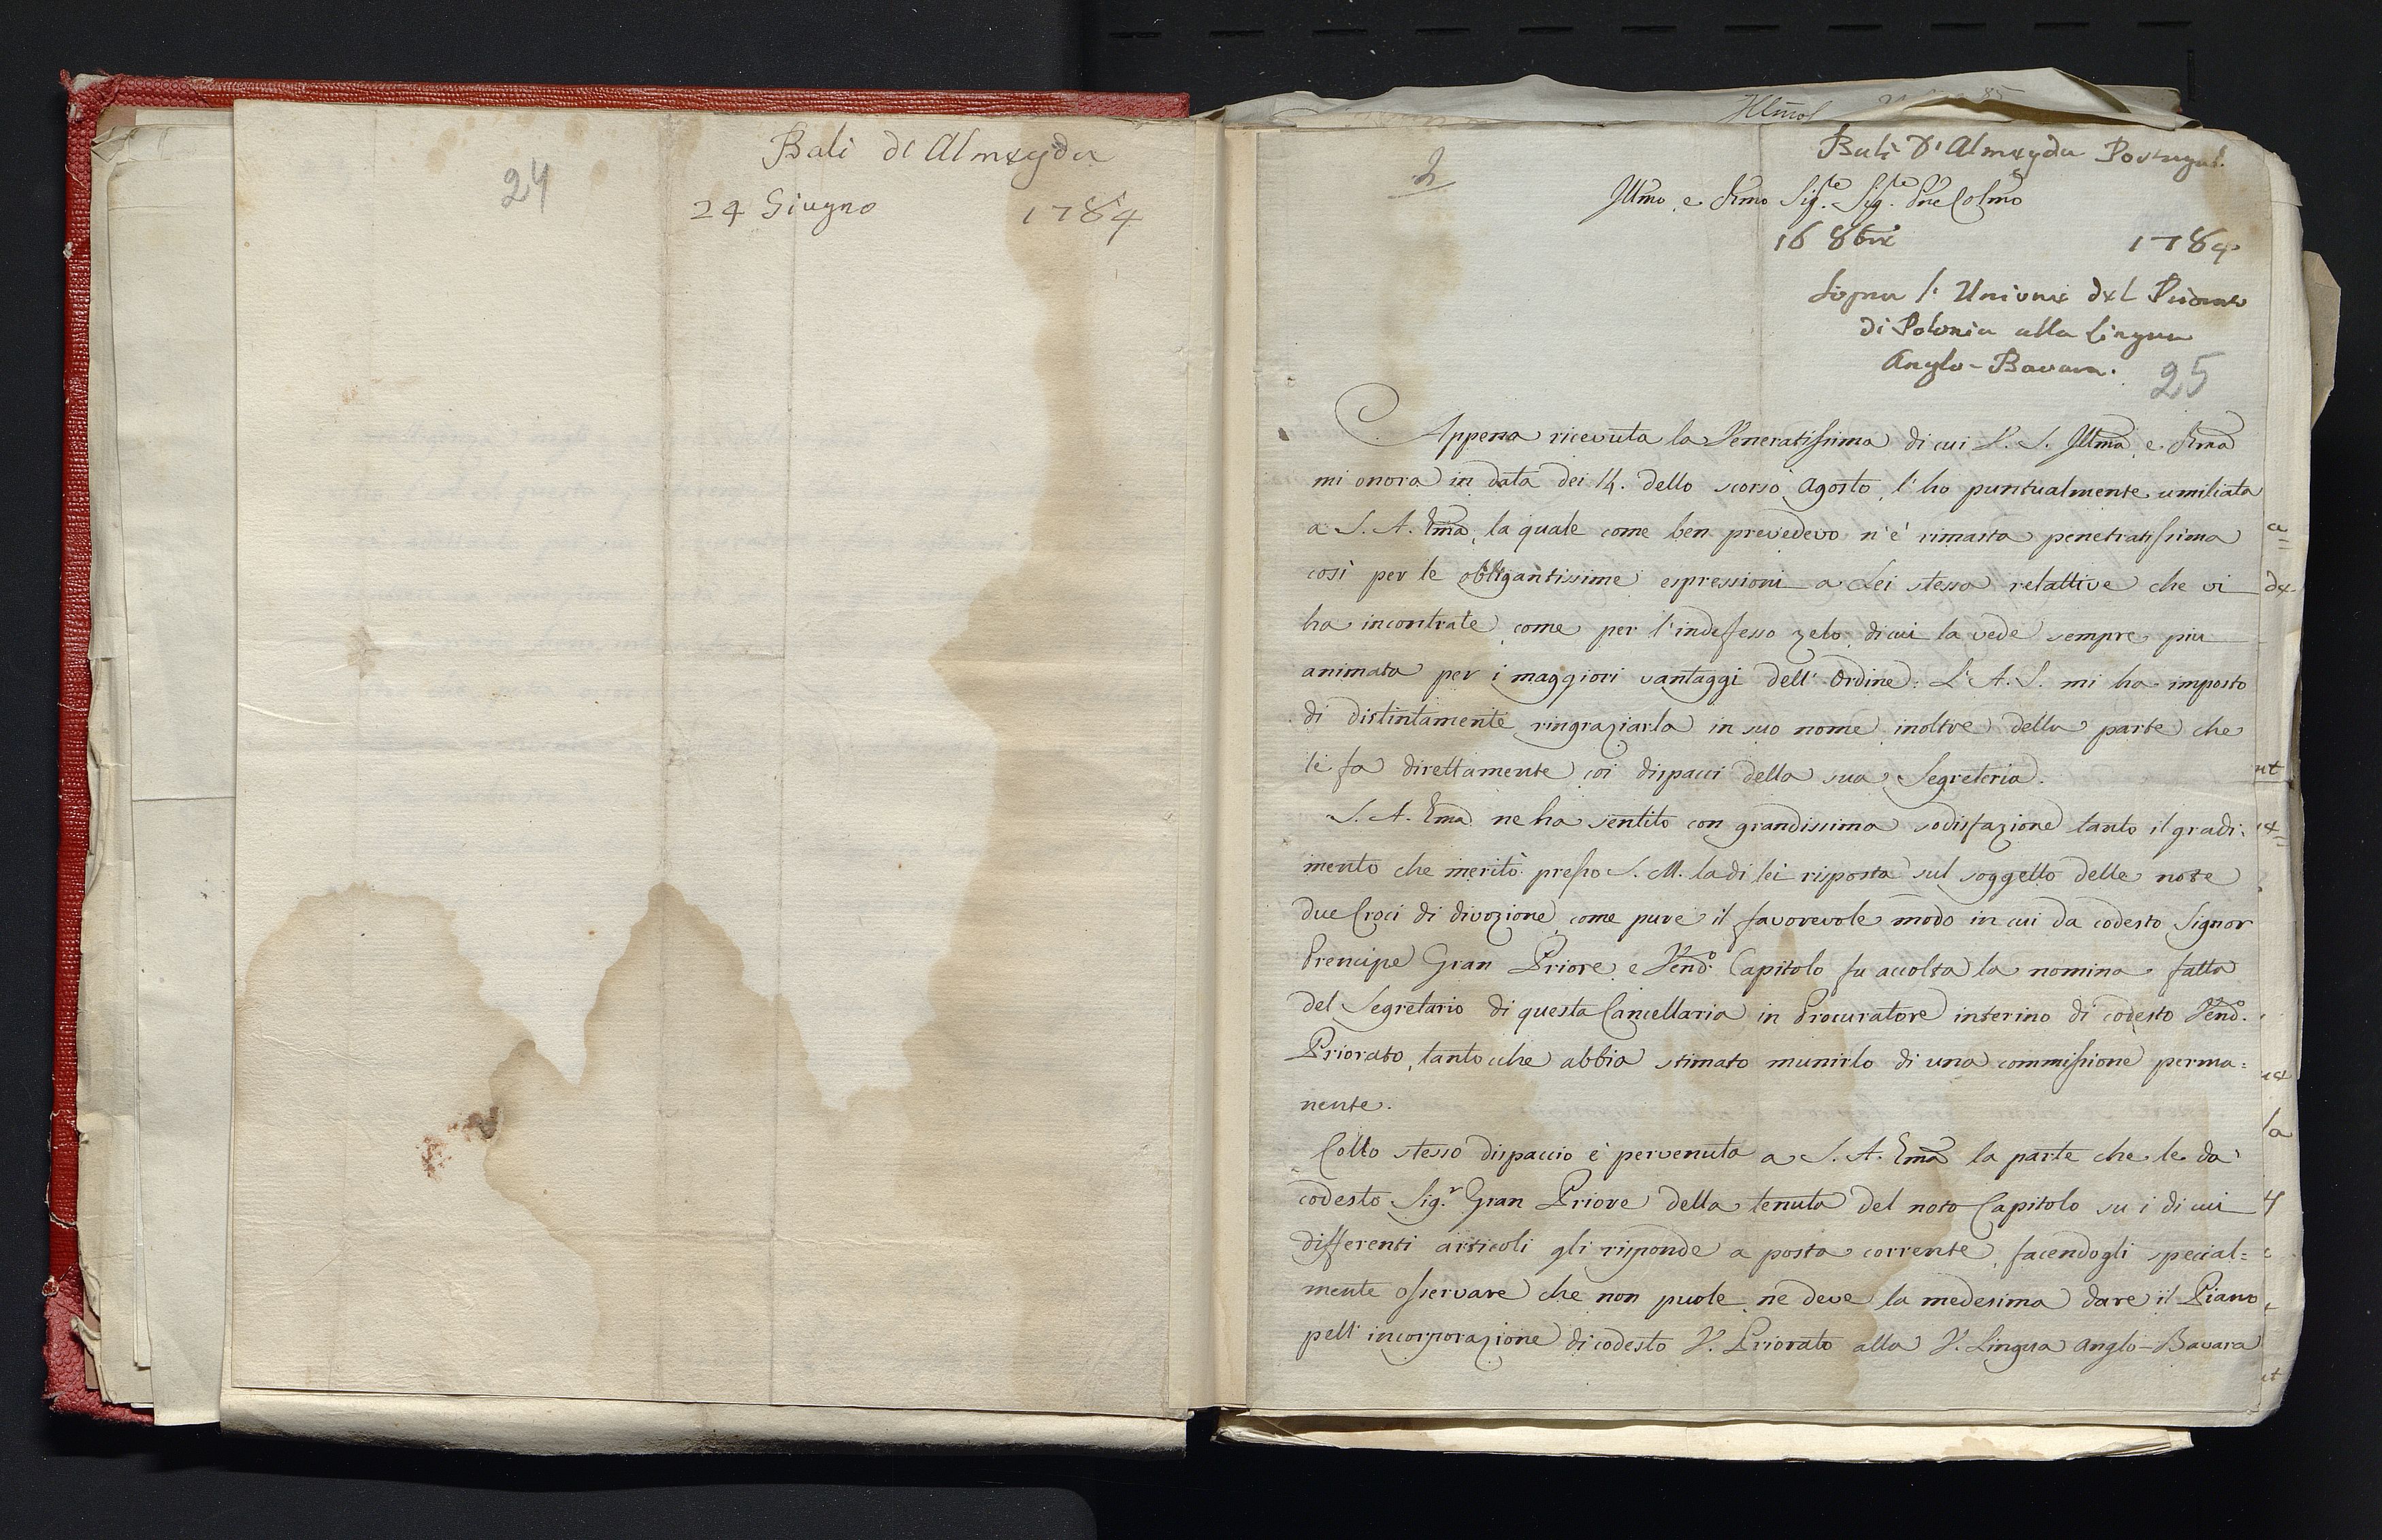 Bali di Almeyda
24
24 Giugno 1784
2
Bali D'Almeyda Portugal.
Illmo, e Rmo Sig.re Sig.re Pne Colmo
16 8bre 1784
Sopra l'Unione del Priorato
di Polonia alla Lingua
Anglo-Bavara.
25
Appena ricevuta la Veneratissima di cui V. S. Illma, e Rma
mi onora in data dei 14. dello scorso Agosto, l'ho puntualmente umiliata
a S. A. Ema, la quale come ben prevedevo n'è rimasta penetratissima
così per le obbligantissime espressioni a Lei stessa relattive che vi
ha incontrate, come per l'indefesso zelo, di cui la vede sempre piu
animata per i maggiori vantaggi dell'Ordine: L'A. S. mi ha imposto
di distintamente ringraziarla in suo nome inoltre della parte che
le fa direttamente coi dispacci della sua Segreteria.
S. A. Ema ne ha sentito con grandissima sodisfazione tanto il gradi:
mento che meritò presso S. M. la di lei risposta sul soggetto delle note
due Croci di divozione, come pure il favorevole modo in cui da codesto Signor
Prencipe Gran Priore e Vendo. Capitolo fu accolta la nomina fatta
del Segretario di questa Cancellaria in Procuratore interino di codesto Vendo.
Priorato, tanto che abbia stimato munirlo di una commissione perma=
nente.
Collo stesso dispaccio è pervenuta a S. A. Ema la parte che le da
codesto Sig.r Gran Priore della tenuta del noto Capitolo su i di cui
differenti articoli gli risponde a posta corrente, facendogli special=
mente osservare che non puole, ne deve la medesima dare il Piano
pell'incorporazione di codesto V. Priorato alla V. Lingua Anglo-Bavara